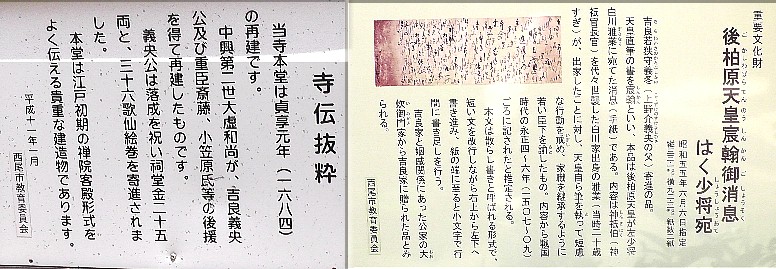 寺伝抜粋
当寺本堂は貞享元年(一六八四)
の再建です。
中興第二世大虚和尚が、吉良義央
公及び重臣斎藤、小笠原氏等の後援
を得て再建したものです。
義央公は落成を祝い祠堂金二十五
両と、三十六歌仙絵巻を寄進されま
した。
本堂は江戸初期の禅院客殿形式を
よく伝える貴重な建造物であります。
平成十一年一月
西尾市教育委員会
重要文化財
後柏原天皇宸翰御消息
はく少将宛
昭和五五年六月六日指定
吉良若狭守義冬(上野介義央の父)寄進の品。
天皇直筆の書を宸翰といい、本品は後柏原天皇が左少将
白川雅業に宛てた消息(手紙)である。内容は神祇伯(神
祇官長官)を代々世襲した白川家出身の雅業(当時二十歳
すぎ)が、出家したことに対し、天皇自ら筆を執って短慮
な行動を戒め、家職を継承するように
若い臣下を諭したもの。内容から戦国
時代の永正四～六年(一五〇七～〇九)
ごろに記されたと推定される。
本文は散らし書きと呼ばれる形式で、
短い文を改行しながら右上から左下へ
書き進み、紙の端に至ると小文字で行
間に書き足しを行う。
吉良家と姻戚関係にあった公家の大
炊御門家から吉良家に贈られた品とみ
られる。
西尾市教育委員会